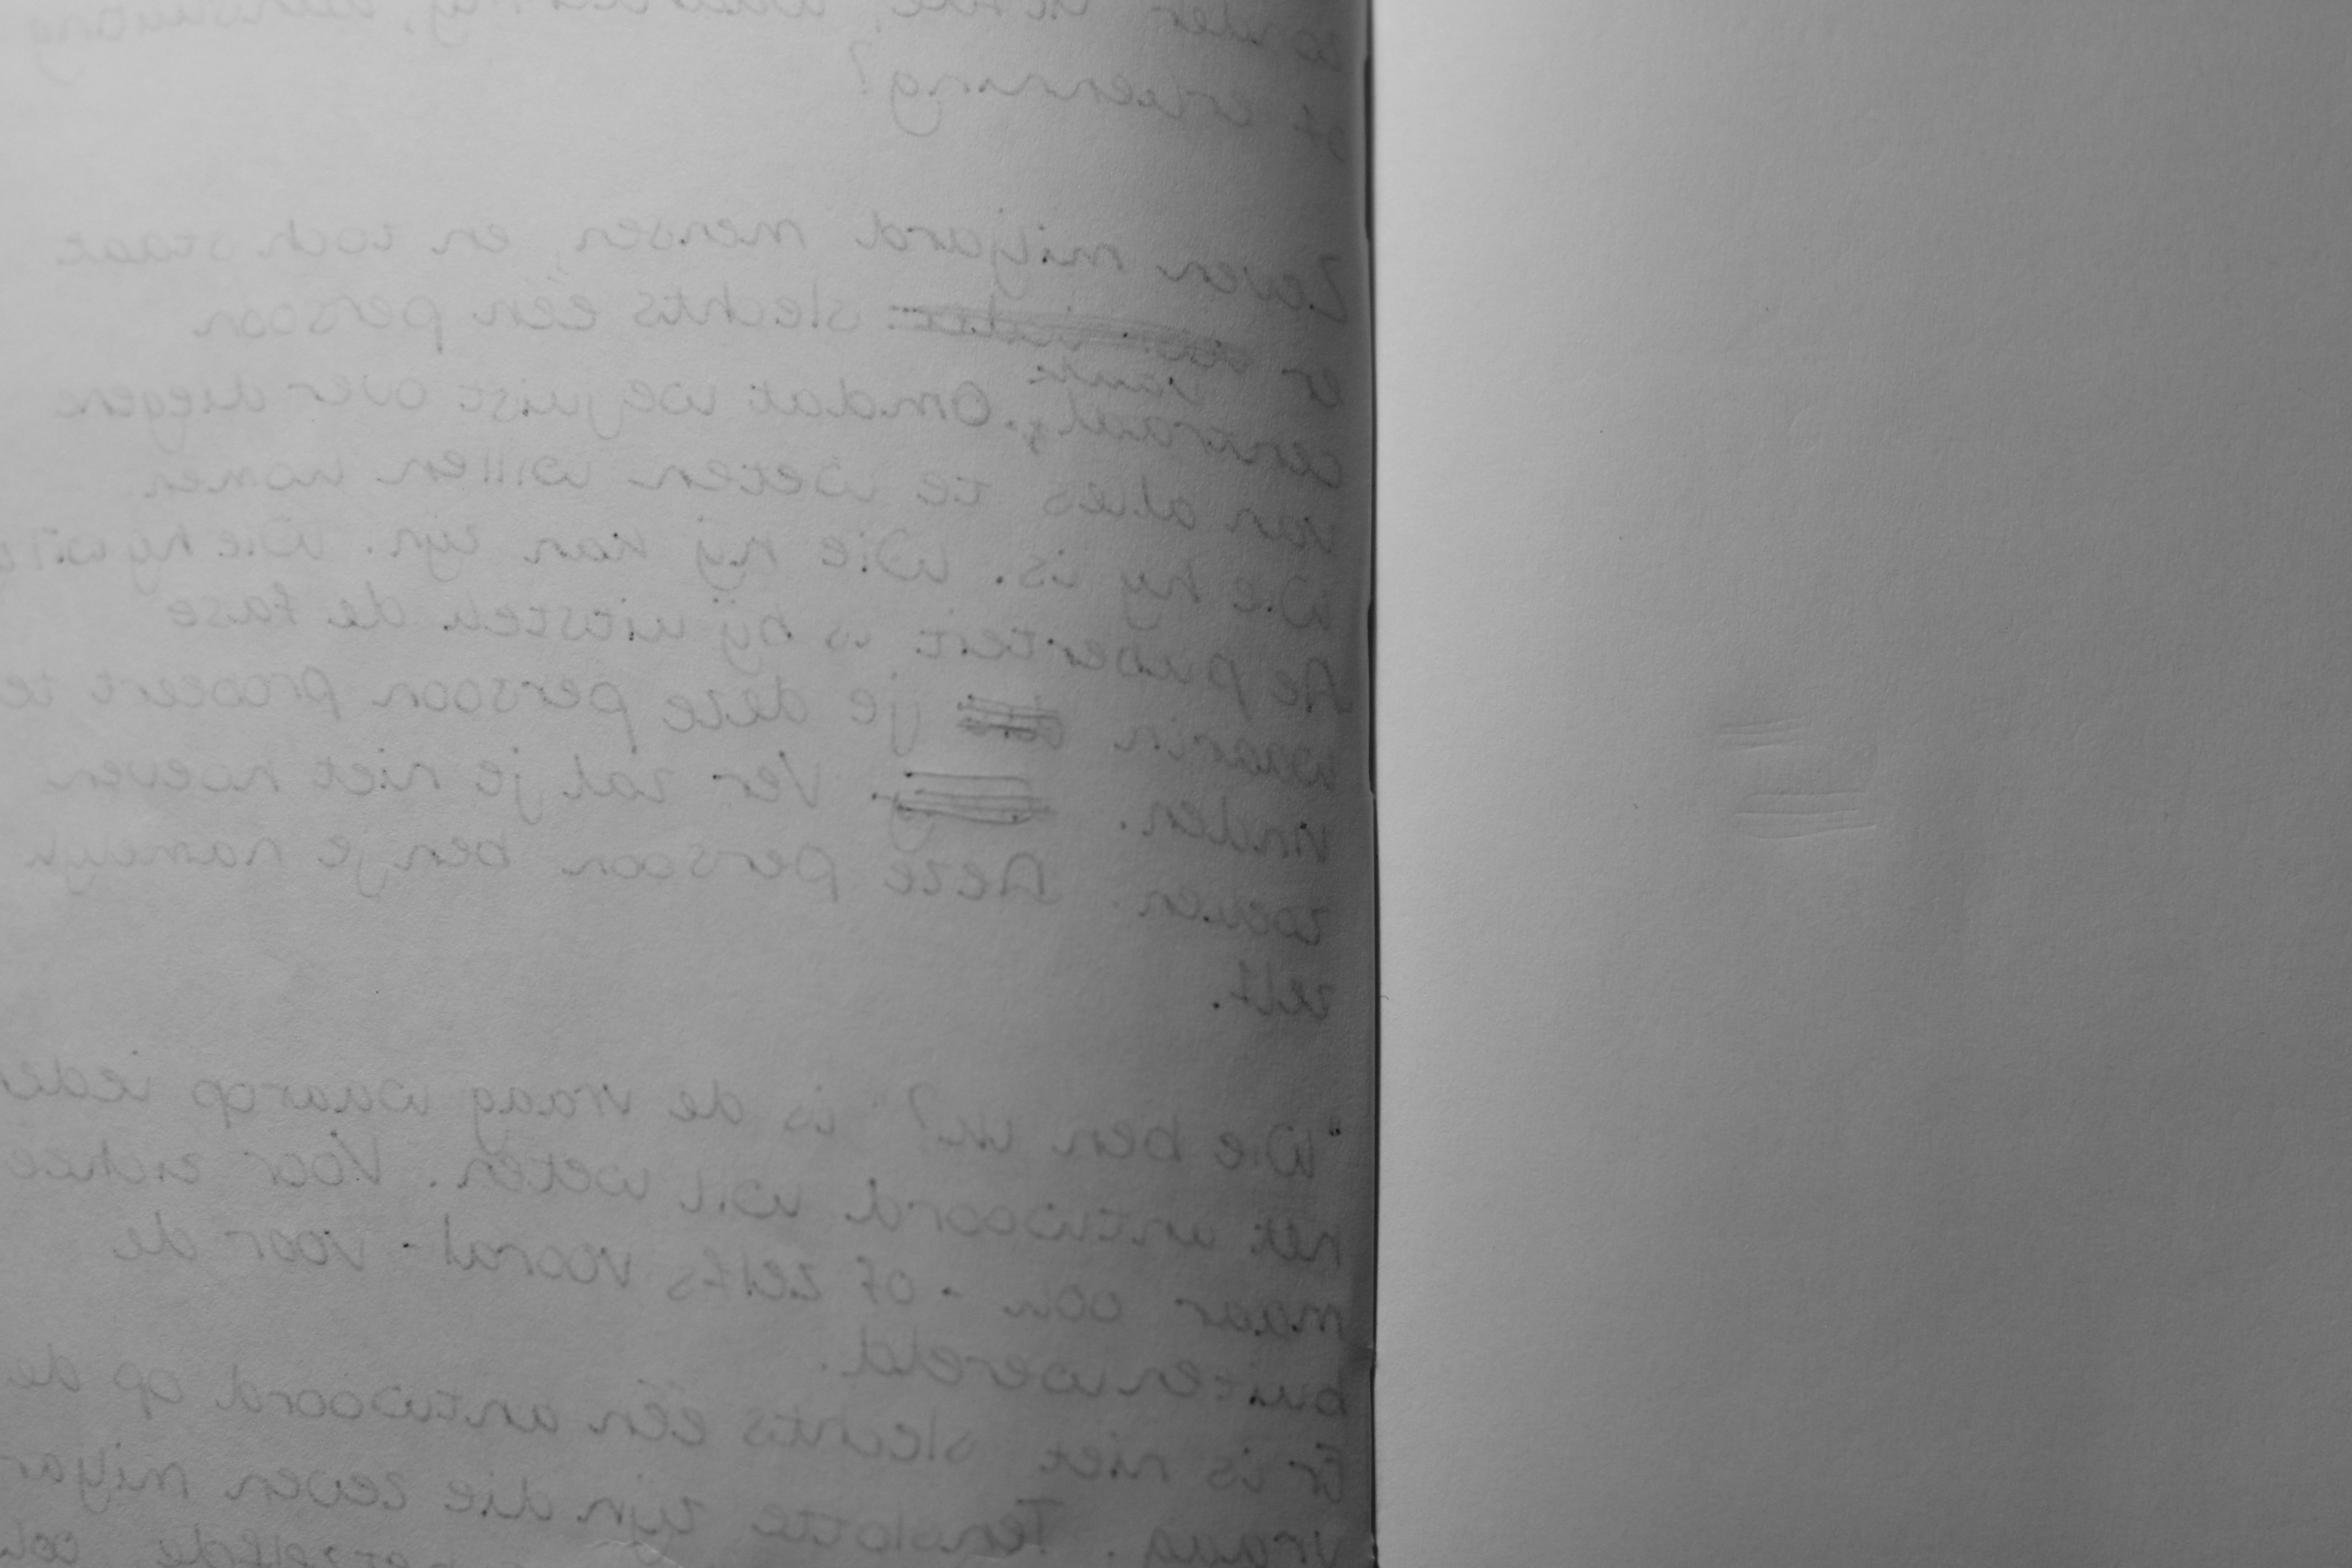 of erkenning?
Zeven miljard mensen, en toch staat
er slechts één persoon
centraal. Omdat we juist over diegene
van alles te weten willen komen.
Wie hij is. Wie hij kan zijn. Wie hij wil
De puberteit is bij uitstek de fase
waarin je deze persoon probeert te
vinden. Ver zal je niet hoeven
zoeken. Deze persoon ben je namelijk
zelf.
"Wie ben ik?" is de vraag waarop ieder
het antwoord wil weten. Voor zichze
maar ook - of zelfs vooral - voor de
buitenwereld.
Er is niet slechts één antwoord op de
vraag. Tenslotte zijn die zeven miljar
ook